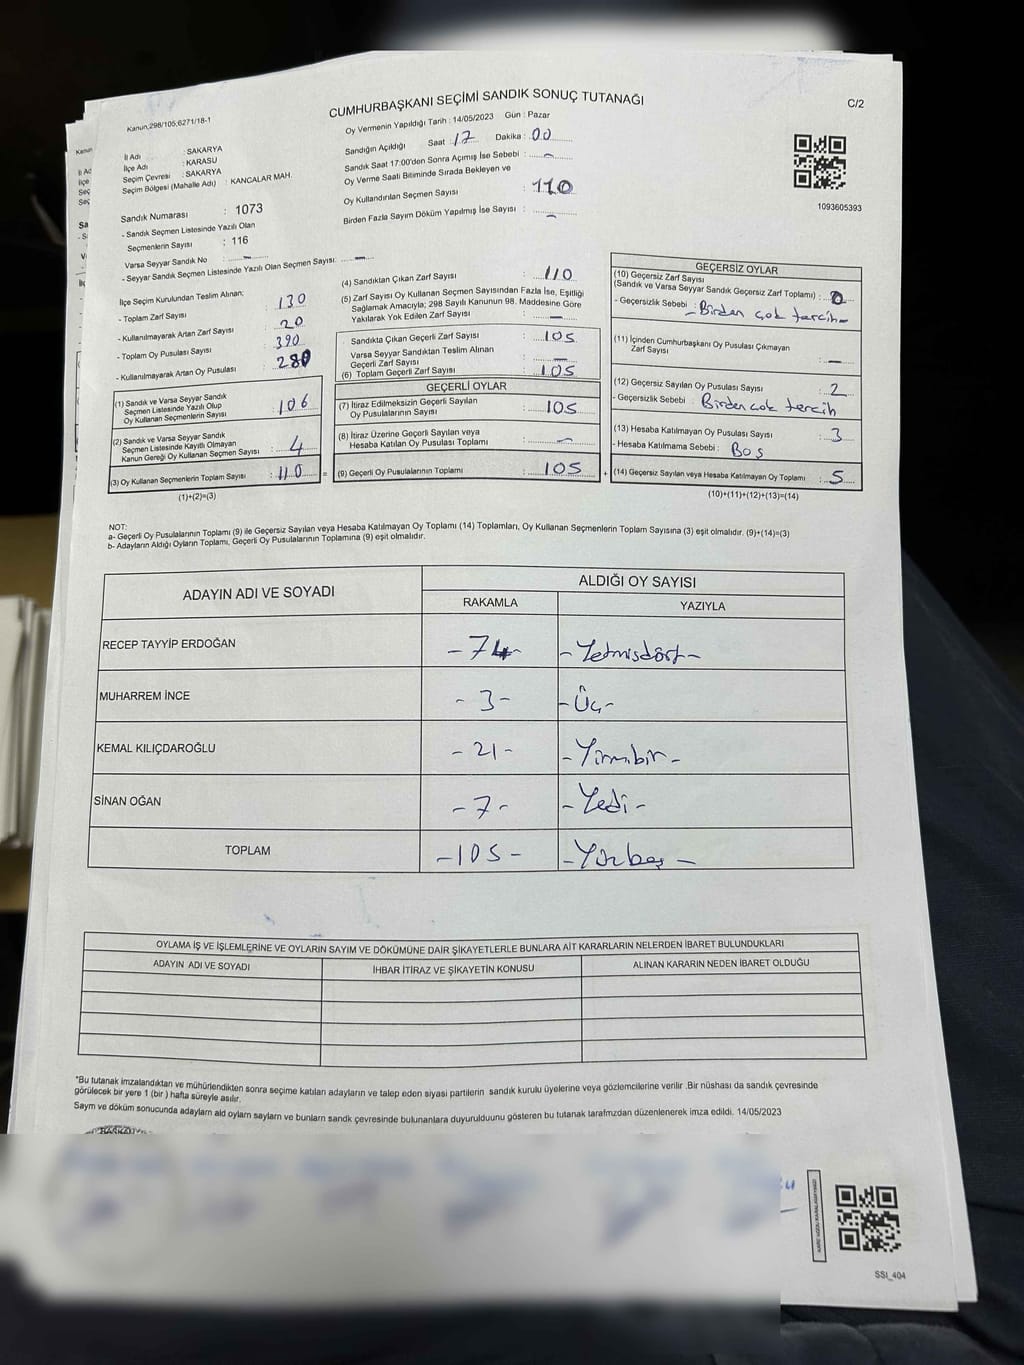 CUMHURBAŞKANI SEÇİMİ SANDIK SONUÇ TUTANAĞI
C/2
Kanun,298/105,6271/18-1
Oy Vermenin Yapıldığı Tarih : 14/05/2023 Gün : Pazar
İl Adı : SAKARYA
İlçe Adı : KARASU
Seçim Çevresi : SAKARYA
Seçim Bölgesi (Mahalle Adı) : KANCALAR MAH.
Sandık Numarası : 1073
- Sandık Seçmen Listesinde Yazılı Olan
Seçmenlerin Sayısı : 116
Varsa Seyyar Sandık No : -
- Seyyar Sandık Seçmen Listesinde Yazılı Olan Seçmen Sayısı: -
Sandığın Açıldığı Saat : 17 Dakika : 00
Sandık Saat 17:00'den Sonra Açımış İse Sebebi : -
Oy Verme Saati Bitiminde Sırada Bekleyen ve
Oy Kullandırılan Seçmen Sayısı : 110
Birden Fazla Sayım Döküm Yapılmış İse Sayısı : -
1093605393
İlçe Seçim Kurulundan Teslim Alınan:
- Toplam Zarf Sayısı : 130
- Kullanılmayarak Artan Zarf Sayısı : 20
- Toplam Oy Pusulası Sayısı : 390
- Kullanılmayarak Artan Oy Pusulası : 280
(1) Sandık ve Varsa Seyyar Sandık
Seçmen Listesinde Yazılı Olup
Oy Kullanan Seçmenlerin Sayısı : 106
(2) Sandık ve Varsa Seyyar Sandık
Seçmen Listesinde Kayıtlı Olmayan
Kanun Gereği Oy Kullanan Seçmen Sayısı : 4
(3) Oy Kullanan Seçmenlerin Toplam Sayısı : 110 =
(1)+(2)=(3)
(4) Sandıktan Çıkan Zarf Sayısı : 110
(5) Zarf Sayısı Oy Kullanan Seçmen Sayısından Fazla İse, Eşitliği
Sağlamak Amacıyla; 298 Sayılı Kanunun 98. Maddesine Göre
Yakılarak Yok Edilen Zarf Sayısı : -
Sandıkta Çıkan Geçerli Zarf Sayısı : 105
Varsa Seyyar Sandıktan Teslim Alınan
Geçerli Zarf Sayısı : -
(6) Toplam Geçerli Zarf Sayısı : 105
GEÇERLİ OYLAR
(7) İtiraz Edilmeksizin Geçerli Sayılan
Oy Pusulalarının Sayısı : 105
(8) İtiraz Üzerine Geçerli Sayılan veya
Hesaba Katılan Oy Pusulası Toplamı : -
(9) Geçerli Oy Pusulalarının Toplamı : 105 +
GEÇERSİZ OYLAR
(10) Geçersiz Zarf Sayısı
(Sandık ve Varsa Seyyar Sandık Geçersiz Zarf Toplamı) : 0
- Geçersizlik Sebebi : - Birden çok tercih -
(11) İçinden Cumhurbaşkanı Oy Pusulası Çıkmayan
Zarf Sayısı : -
(12) Geçersiz Sayılan Oy Pusulası Sayısı : 2
- Geçersizlik Sebebi : Birden çok tercih
(13) Hesaba Katılmayan Oy Pusulası Sayısı : 3
- Hesaba Katılmama Sebebi : Boş
(14) Geçersiz Sayılan veya Hesaba Katılmayan Oy Toplamı : 5
(10)+(11)+(12)+(13)=(14)
NOT:
a- Geçerli Oy Pusulalarının Toplamı (9) ile Geçersiz Sayılan veya Hesaba Katılmayan Oy Toplamı (14) Toplamları, Oy Kullanan Seçmenlerin Toplam Sayısına (3) eşit olmalıdır. (9)+(14)=(3)
b- Adayların Aldığı Oyların Toplamı, Geçerli Oy Pusulalarının Toplamına (9) eşit olmalıdır.
ADAYIN ADI VE SOYADI
ALDIĞI OY SAYISI
RAKAMLA YAZIYLA
RECEP TAYYİP ERDOĞAN - 74 - - Yetmişdört -
MUHARREM İNCE - 3 - - Üç -
KEMAL KILIÇDAROĞLU - 21 - - Yirmibir -
SİNAN OĞAN - 7 - - Yedi -
TOPLAM - 105 - - Yüzbeş -
OYLAMA İŞ VE İŞLEMLERİNE VE OYLARIN SAYIM VE DÖKÜMÜNE DAİR ŞİKAYETLERLE BUNLARA AİT KARARLARIN NELERDEN İBARET BULUNDUKLARI
ADAYIN ADI VE SOYADI İHBAR İTİRAZ VE ŞİKAYETİN KONUSU ALINAN KARARIN NEDEN İBARET OLDUĞU
*Bu tutanak imzalandıktan ve mühürlendikten sonra seçime katılan adayların ve talep eden siyasi partilerin sandık kurulu üyelerine veya gözlemcilerine verilir .Bir nüshası da sandık çevresinde
görülecek bir yere 1 (bir ) hafta süreyle asılır.
Saym ve döküm sonucunda adaylarn ald oylarn saylarn ve bunlarn sandk çevresinde bulunanlara duyurulduunu gösteren bu tutanak tarafmzdan düzenlenerek imza edildi. 14/05/2023
SSI_404